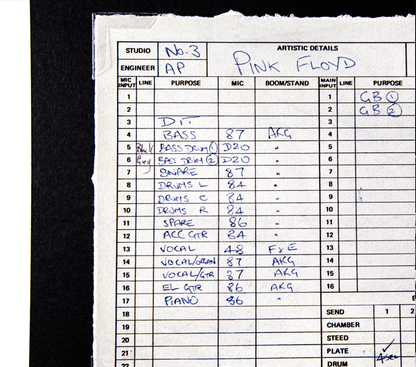 STUDIO No.3 ARTISTIC DETAILS
ENGINEER AP PINK FLOYD
MIC INPUT LINE PURPOSE MIC BOOM/STAND MAIN INPUT LINE PURPOSE
1 1 GB ①
2 2 GB ②
3 DIT 3
4 BASS 87 AKG 4
5 BASS DRUM ① D20 " 5
6 BASS DRUM ② D20 " 6
7 SNARE 87 " 7
8 DRUMS L 84 " 8
9 DRUMS C 84 " 9
10 DRUMS R 84 " 10
11 SPARE 86 " 11
12 ACC GTR 84 " 12
13 VOCAL 48 FxE 13
14 VOCAL/ORGAN 87 AKG 14
15 VOCAL/GTR 87 AKG 15
16 EL GTR 86 AKG 16
17 PIANO 86 "
18 SEND 1 2
19 CHAMBER
20 STEED
21 PLATE ✓ 4sec
22 DRUM